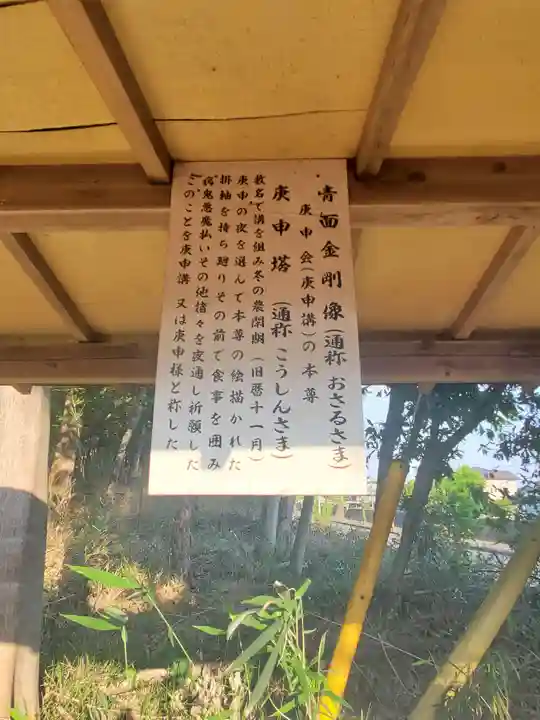 青面金剛像(通称 おさるさま)
庚申会(庚申講)の本尊
庚申塔 (通称 こうしんさま)
数名で溝を組み冬の農閑期 (旧暦十一月)
庚申の夜を選んで本尊の絵描かれた
掛軸を持ち廻りその前で食事を囲み
病鬼悪魔払いその他諸々を夜通し祈願した
このことを庚申講 又は庚申様と称した